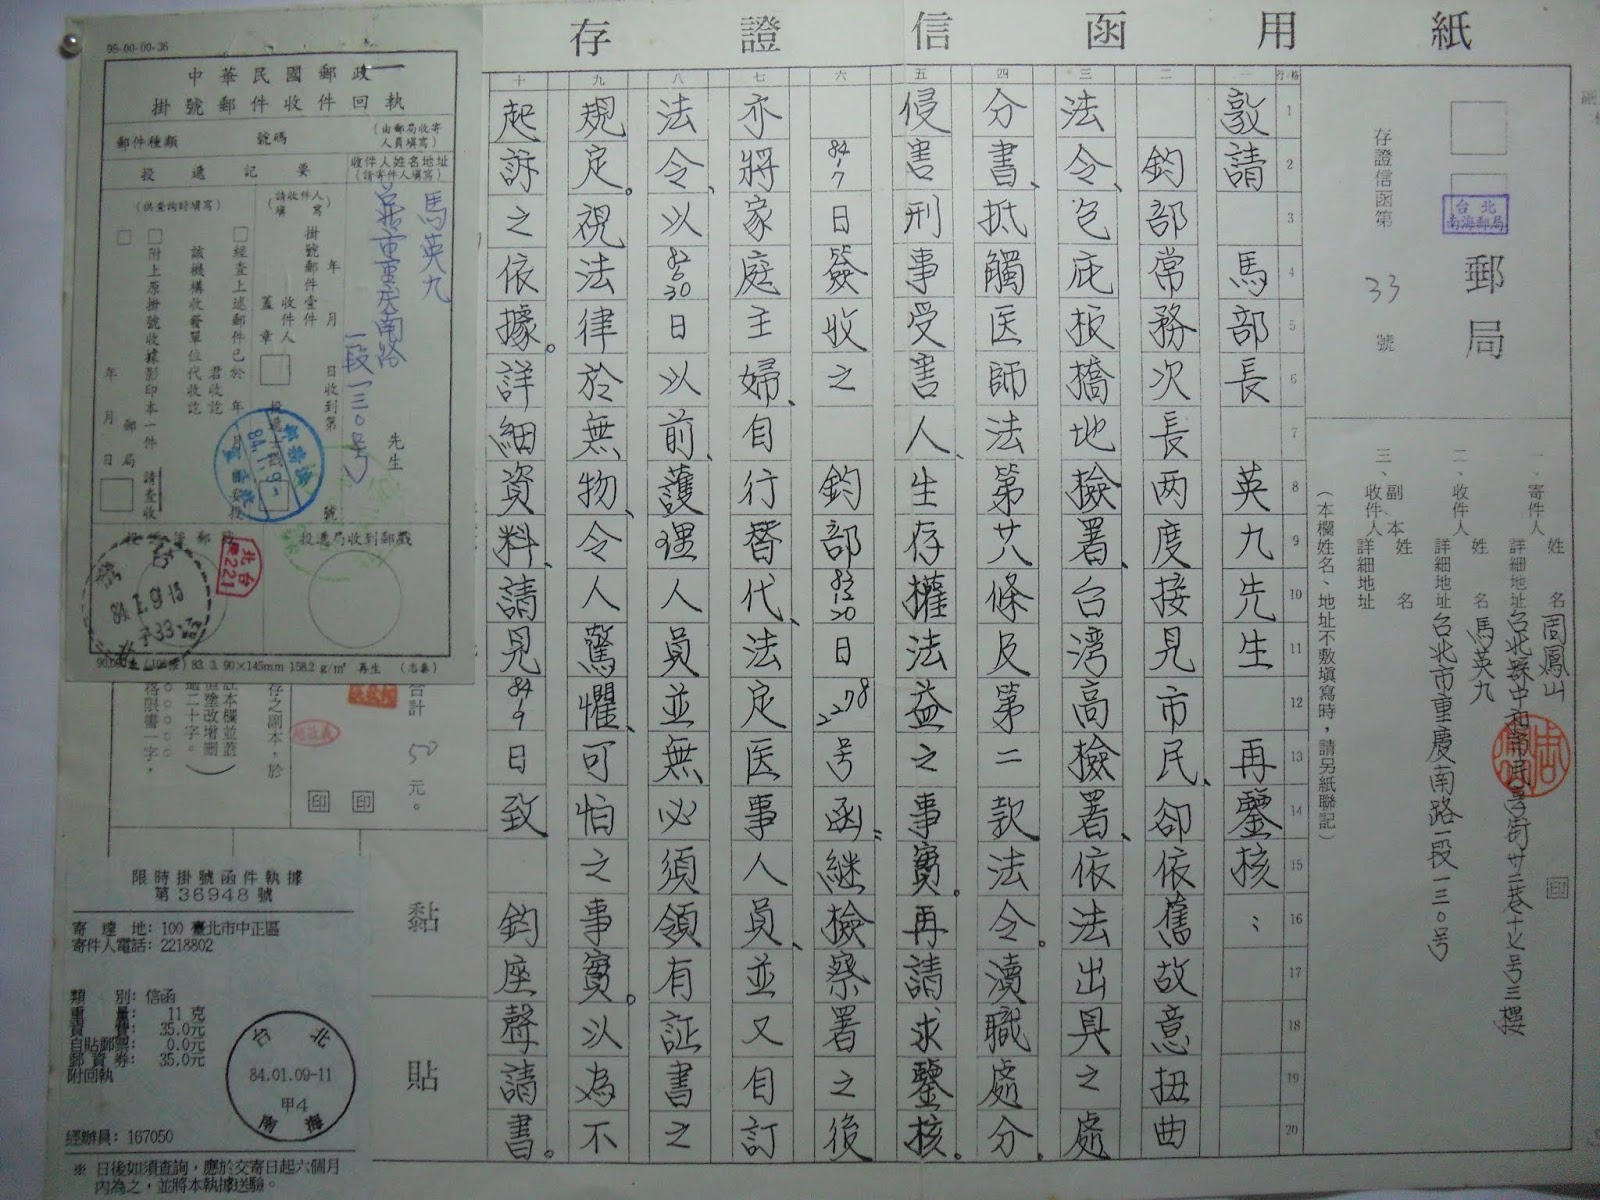 存證信函用紙
台北
南海郵局
郵局
存證信函第 33 號
一、寄件人 姓名 周鳳山
詳細地址 台北縣中和市民享街卅二巷十七号三樓
二、收件人 姓名 馬英九
詳細地址 台北市重慶南路一段一三〇号
三、副本收件人 姓名
詳細地址
(本欄姓名、地址不敷填寫時,請另紙聯記)
格/行 1 2 3 4 5 6 7 8 9 10 11 12 13 14 15 16 17 18 19 20
一 敦請 馬部長 英九先生 再鑒核:
二 鈞部常務次長两度接見市民、卻依舊故意扭曲
三 法令、包庇板橋地檢署、台湾高檢署、依法出具之處
四 分書、抵觸医師法第廿八條及第二款法令。瀆職處分。
五 侵害刑事受害人、生存權法益之事實。再請求鑒核。
六 84.1.7日簽收之 鈞部83.12.30日2278号函;継檢察署之後
七 亦將家庭主婦、自行替代、法定医事人員、並又自訂
八 法令、以82.5.30日以前、護理人員並無必須領有証書之
九 規定。視法律於無物、令人驚懼、可怕之事實。以為不
十 起訴之依據。詳細資料、請見84.1.9日致 鈞座聲請書。
黏
貼
合計 50 元。
印 印
印
95-00-00-36
中華民國郵政
掛號郵件收件回執
郵件種類 號碼 (由郵局收寄人員填寫)
投遞記要 收件人姓名地址(請寄件人填寫)
馬英九 先生
重慶南路
一段一三〇号
(請收件人填寫)
掛號郵件壹件 年 月 日收到第 號
收件人蓋章
(供查詢時填寫)
經查上述郵件已於 年 月
該機構收發單位代收訖
君收訖
附上原掛號收據影印本一件 請查收
年 月 日 郵局
投遞局收到郵戳
台北
221
84.1.9
83. 3. 90×145mm 158.2 g/㎡ 再生
限時掛號函件執據
第 36948 號
寄達地: 100 臺北市中正區
寄件人電話: 2218802
類別: 信函
重量: 11 克
資費: 35.0元
自貼郵票: 0.0元
郵資券: 35.0元
附回執
台北
84.01.09-11
甲4
南海
經辦員: 167050
※ 日後如須查詢,應於交寄日起六個月
內為之,並將本執據送驗。